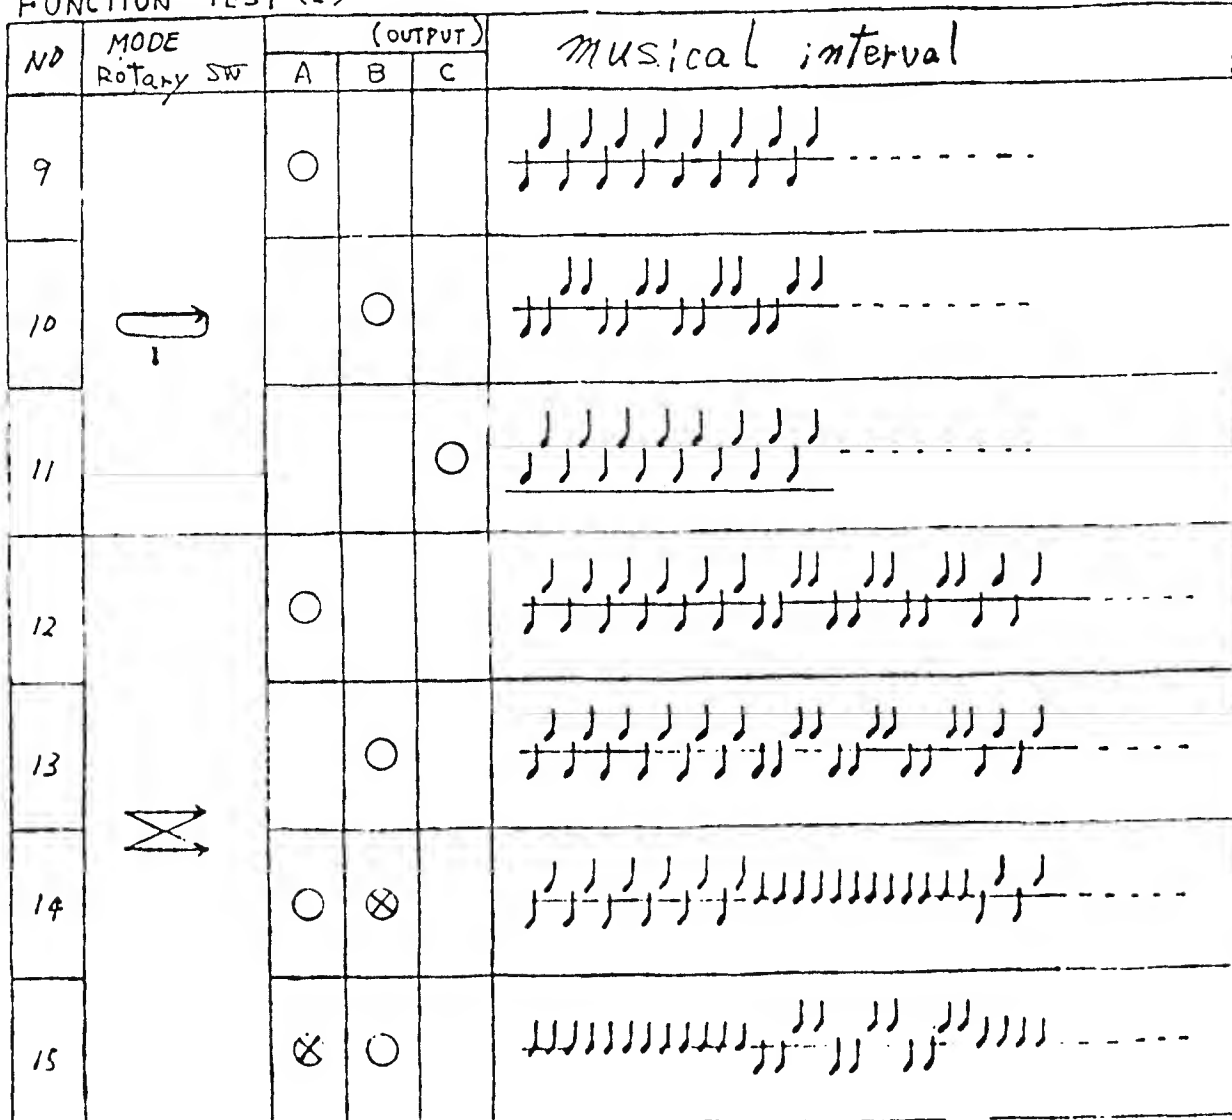 FUNCTION TEST (2)
NO MODE Rotary SW (OUTPUT) A B C musical interval
9
10
1
11
12
13
14
15